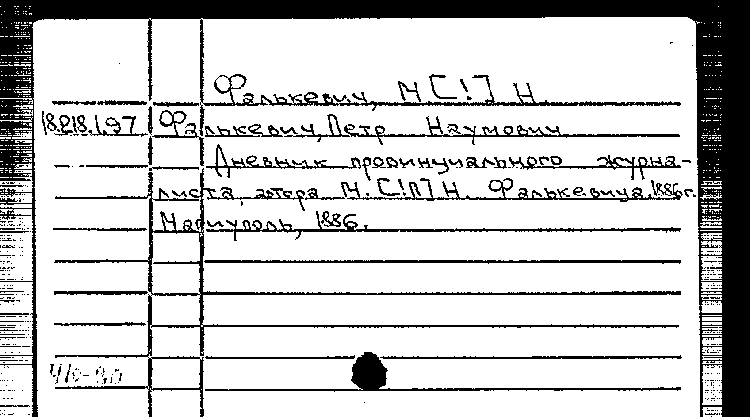 Фалькевич, М [!] Н.
18.218.1.97 Фалькевич, Петр Наумович
Дневник провинциального журна-
листа, автора М. [!П] Н. Фалькевича. 1886 г.
Мариуполь, 1886.